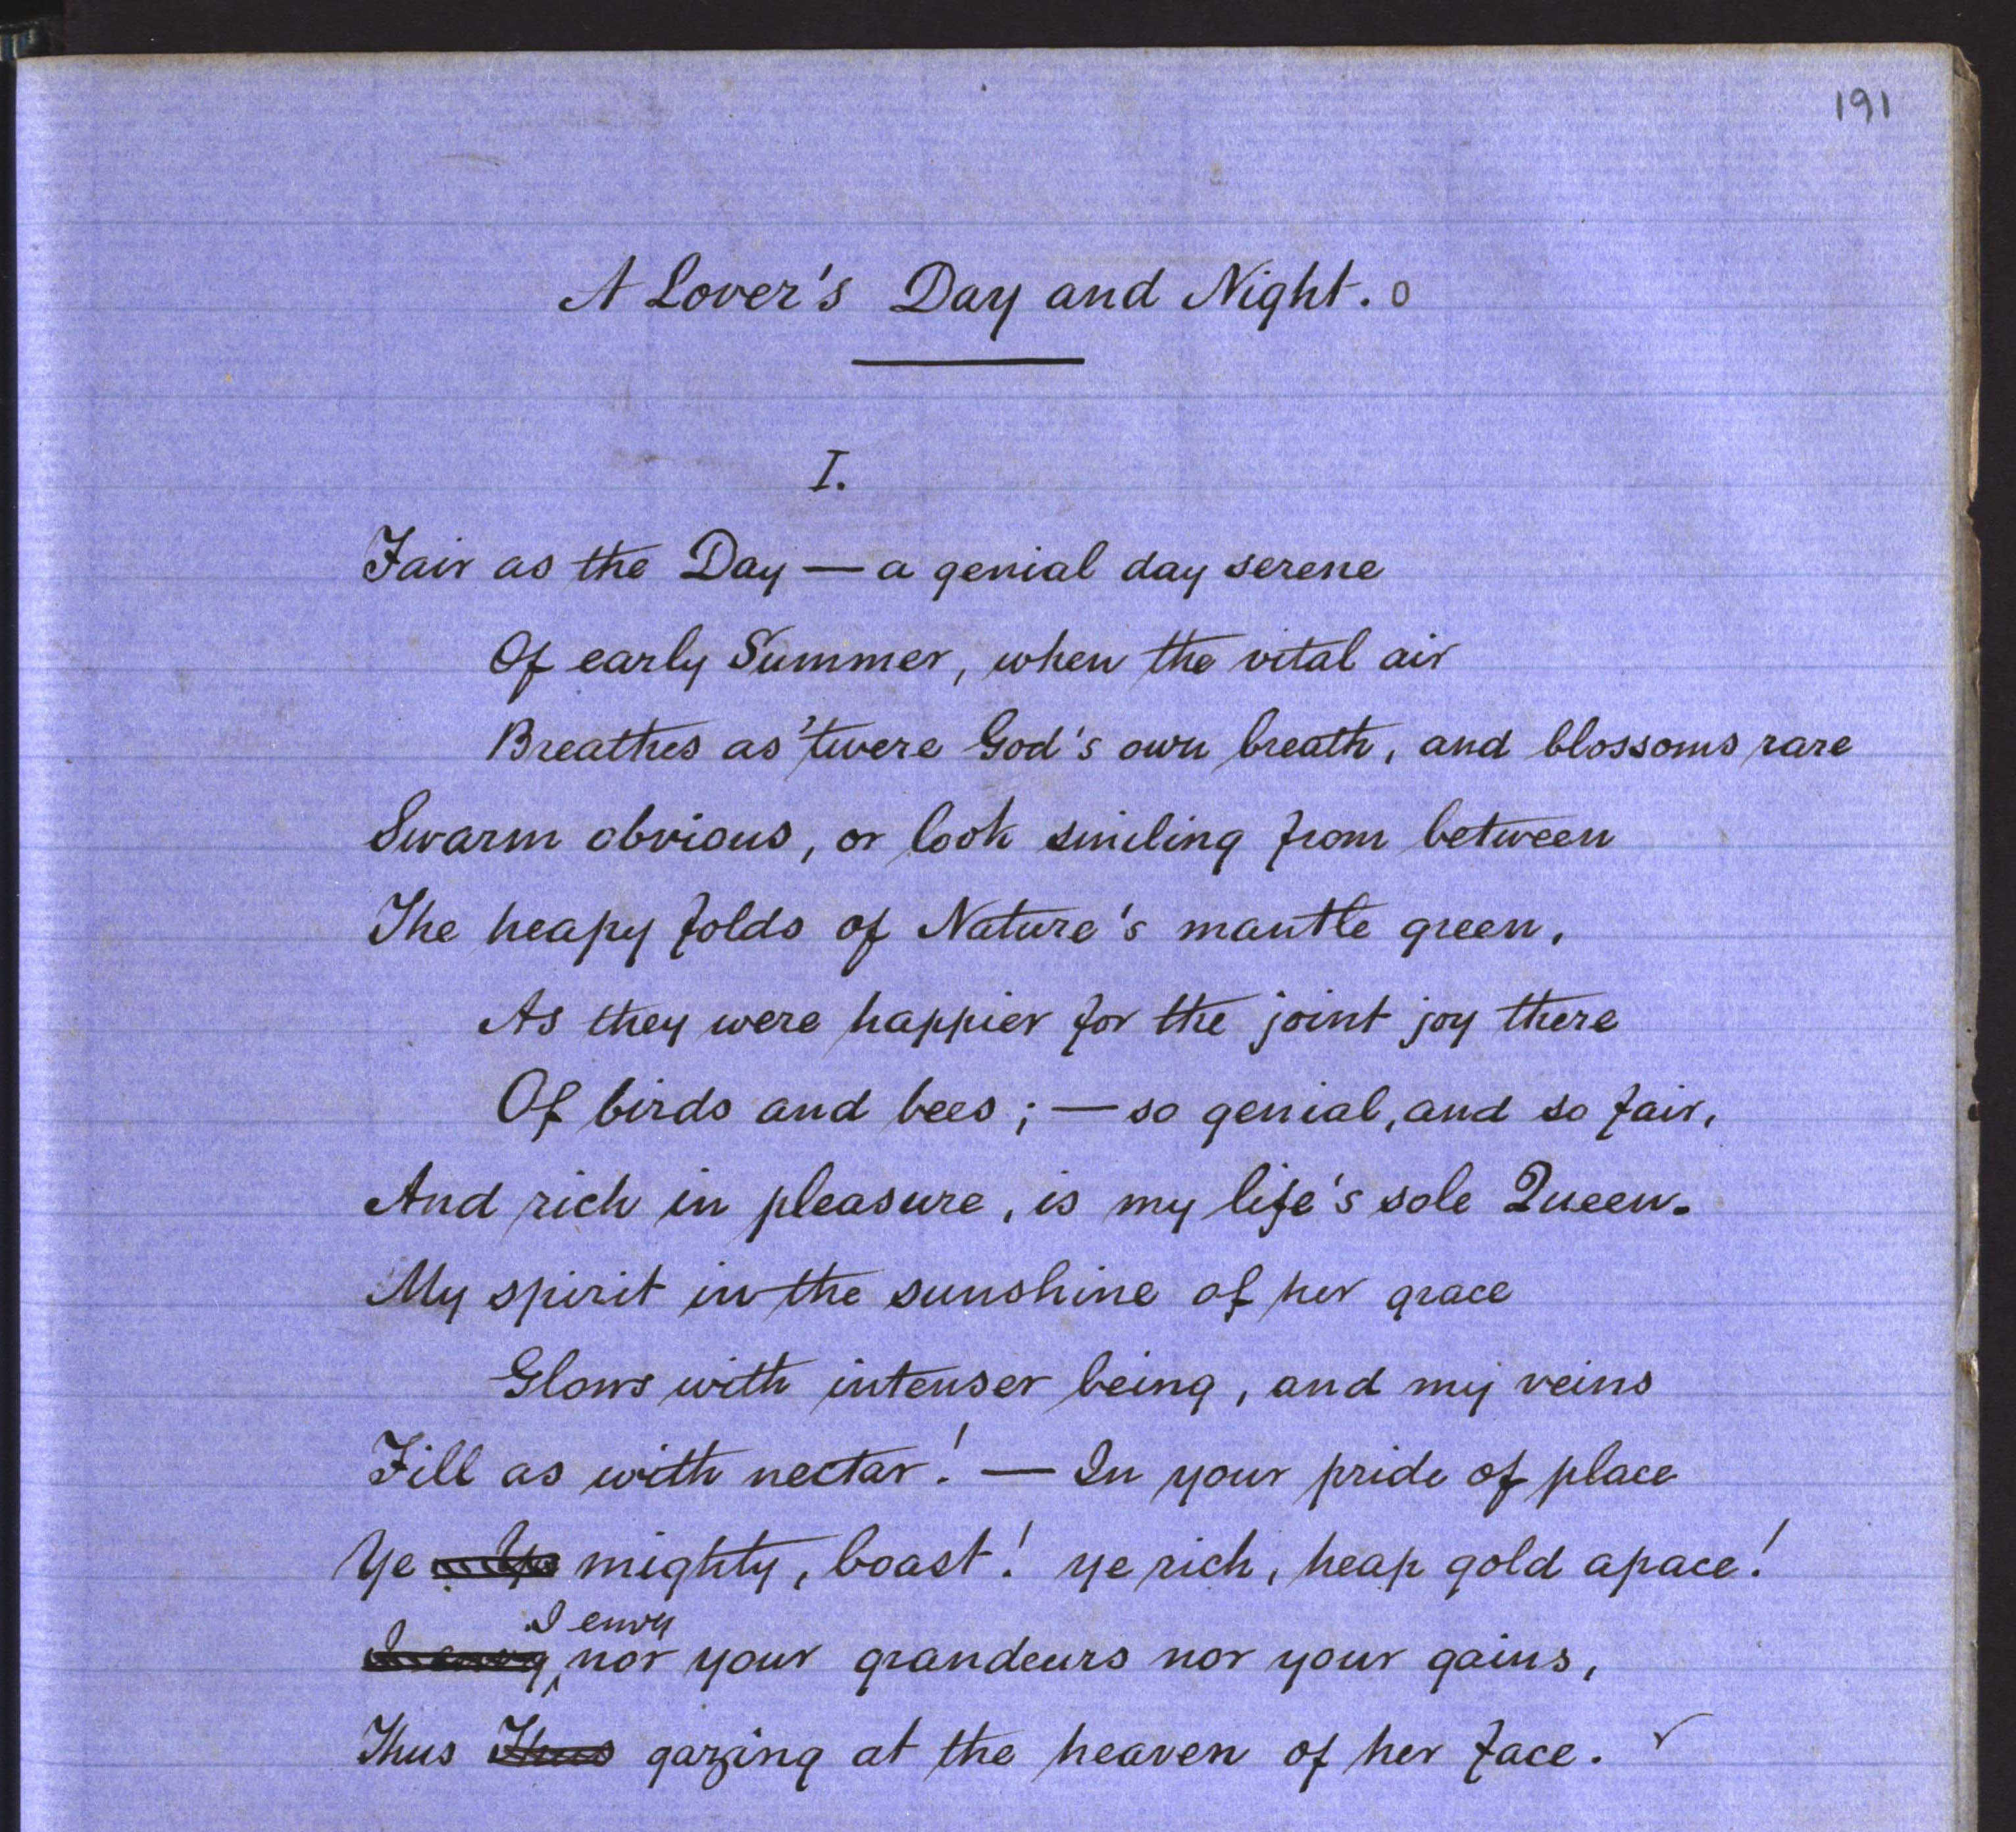 191
A Lover's Day and Night. o
I.
Fair as the Day — a genial day serene
Of early Summer, when the vital air
Breathes as 'twere God's own breath, and blossoms rare
Swarm obvious, or look smiling from between
The heapy folds of Nature's mantle green,
As they were happier for the joint joy there
Of birds and bees; — so genial, and so fair,
And rich in pleasure, is my life's sole Queen.
My spirit in the sunshine of her grace
Glows with intenser being, and my veins
Fill as with nectar! — In your pride of place
Ye mighty, boast! ye rich, heap gold apace!
I envy
I envy, nor your grandeurs nor your gains,
Thus Thus gazing at the heaven of her face.